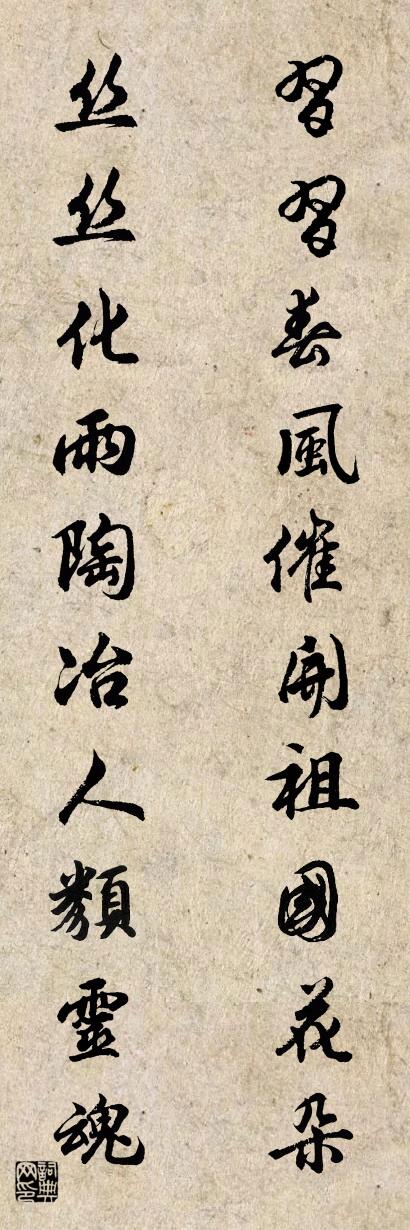 習習春風催開祖國花朵
丝丝化雨陶冶人類靈魂
詞典网印